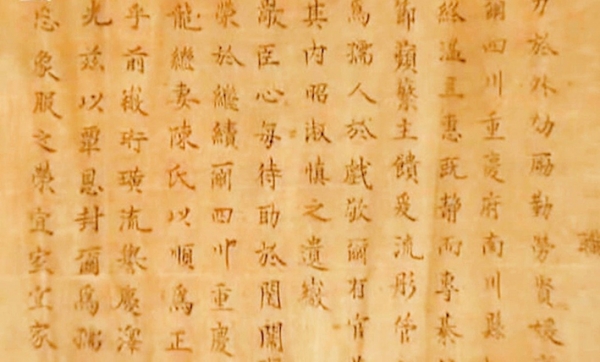 力於外功勵勤勞賢媛
爾四川重慶府南川縣
終溫且惠既靜而專
節蘋蘩主饋爰流彤管
為孺人於戲敬爾有官
其內昭淑慎之遺徽
臣心每待助於閨闈
榮於繼續爾四川重慶
龍繼妻陳氏以順為正
乎前徽珩璜流譽慶澤
光茲以覃恩封爾為孺
象服之榮宜室宜家